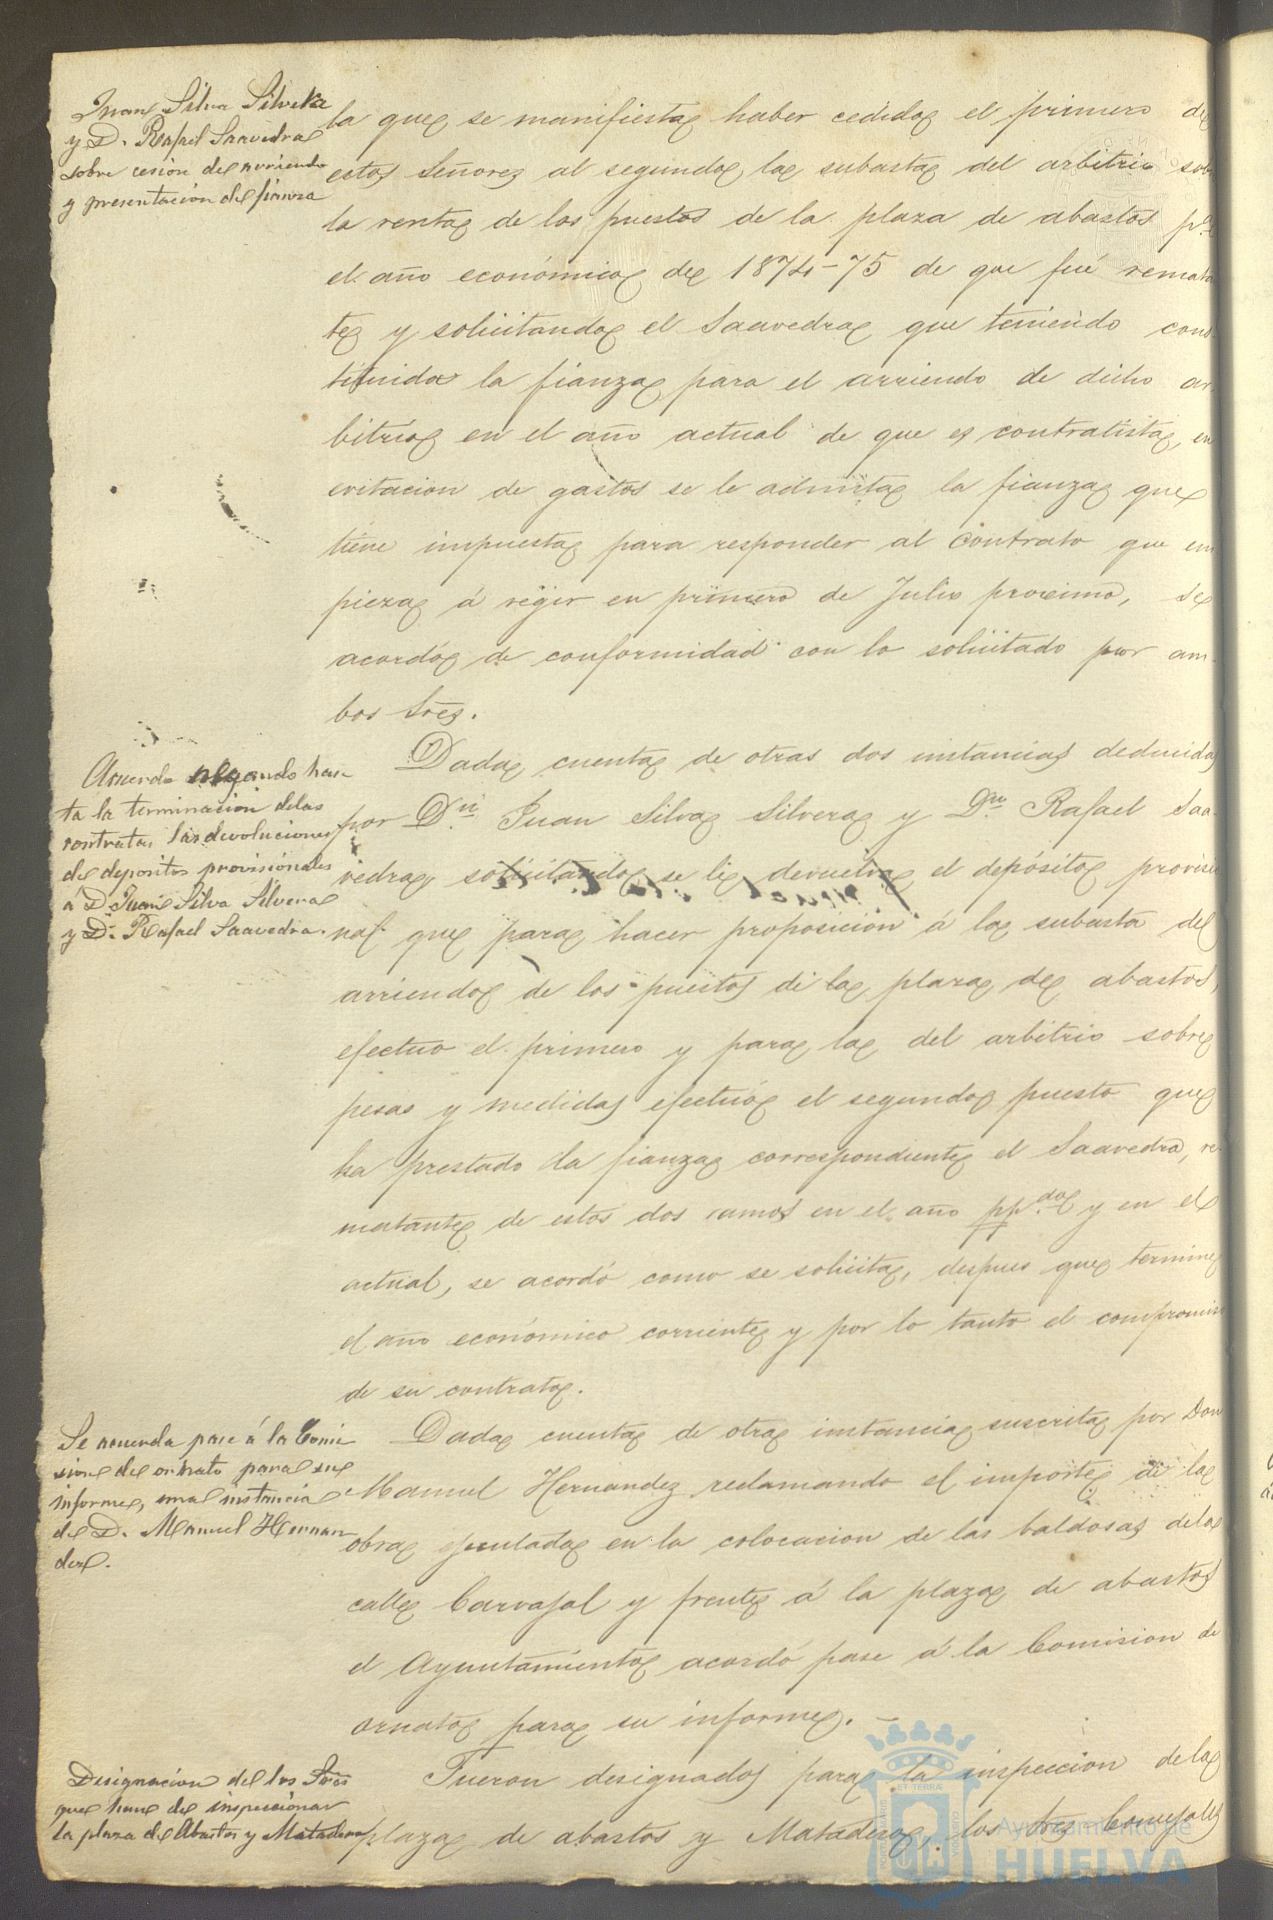 Juan Silva Silveira
y D. Rafael Saavedra
sobre cesion del arriendo
y presentación de fianza
la que se manifiesta haber cedido el primero de
estos Señores al segundo la subasta del arbitrio sob
la renta de los puestos de la plaza de abastos pa
el año económico de 1874-75 de que fué remata
te y solicitando el Saavedra que teniendo cons
tituida la fianza para el arriendo de dicho ar
bitrio en el año actual de que es contratista, en
evitacion de gastos se le admita la fianza que
tiene impuesta para responder al contrato que em
pieza á regir en primero de Julio proximo, se
acordó de conformidad con lo solicitado por am
bos Sres.
Acuerdo negando has-
ta la terminacion delas
contratas las devoluciones
de depositos provisionales
á D. Juan Silva Silvera
y D. Rafael Saavedra.
Dada cuenta de otras dos instancias deducidas
por Dn. Juan Silva Silvera y Dn. Rafael Saa
vedra, solicitando se le devuelva el depósito provisio
nal que para hacer proposición á la subasta del
arriendo de los puestos de la plaza de abastos,
efectuo el primero y para la del arbitrio sobre
pesas y medidas efectuó el segundo puesto que
ha prestado la fianza correspondiente el Saavedra, re
matante de estos dos ramos en el año ppdo y en el
actual, se acordó como se solicita, despues que termine
el año económico corriente y por lo tanto el compromiso
de su contrato.
Se acuerda pase á la Comi
sion de ornato para su
informe, una instancia
de D. Manuel Hernan
dez.
Dada cuenta de otra instancia suscrita por Don
Manuel Hernandez reclamando el importe de la
obra ejecutada en la colocacion de las baldosas dela
calle Carvajal y frente á la plaza de abastos
el Ayuntamiento acordó pase á la Comision de
ornato para su informe.
Designacion de los Sres
que han de inspeccionar
la plaza de Abastos y Matadero
Fueron designados para la inspeccion dela
plaza de abastos y Matadero, los Sres Concejales
Ayuntamiento de
HUELVA